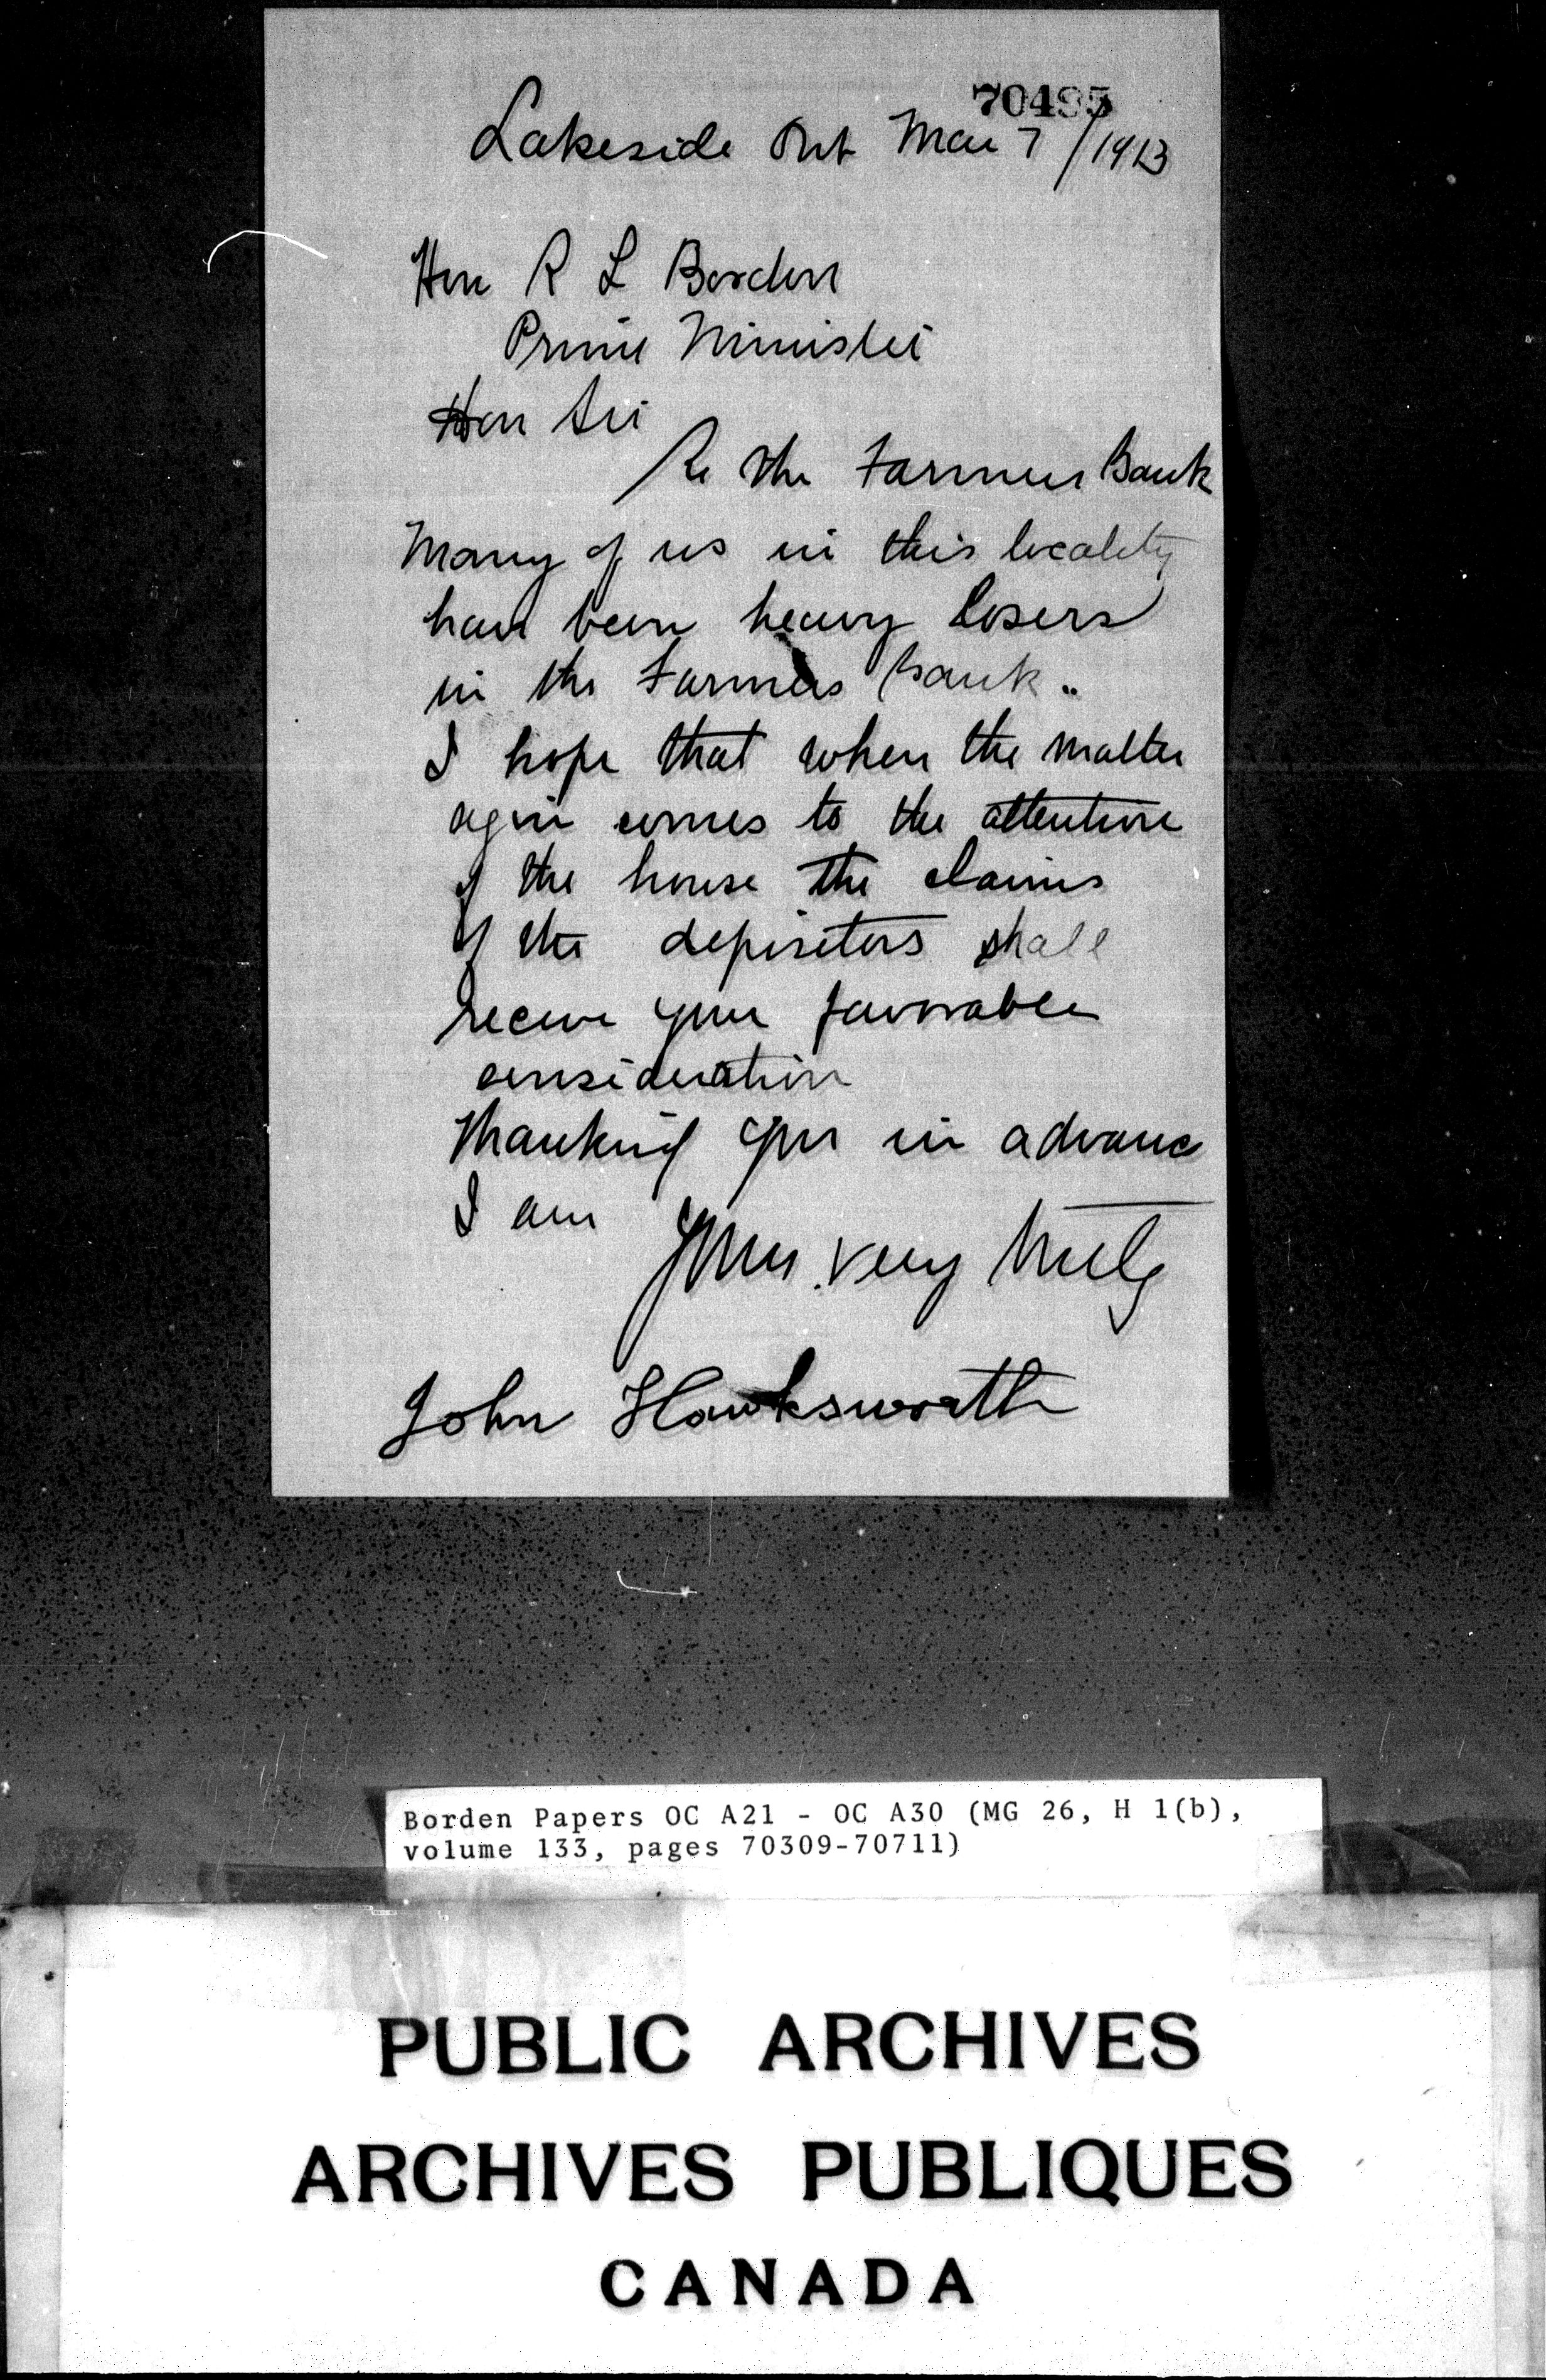 70495
Lakeside Ont Mar 7/1913
Hon R L Borden
Prime Minister
Hon Sir
Re the Farmers Bank
Many of us in this locality
have been heavy losers
in the Farmers Bank..
I hope that when the matter
again comes to the attention
of the house the claims
of the depositors shall
receive your favorable
consideration
Thanking you in advance
I am
Yours very truly
John Hawksworth
Borden Papers OC A21 - OC A30 (MG 26, H 1(b),
volume 133, pages 70309-70711)
PUBLIC ARCHIVES
ARCHIVES PUBLIQUES
CANADA